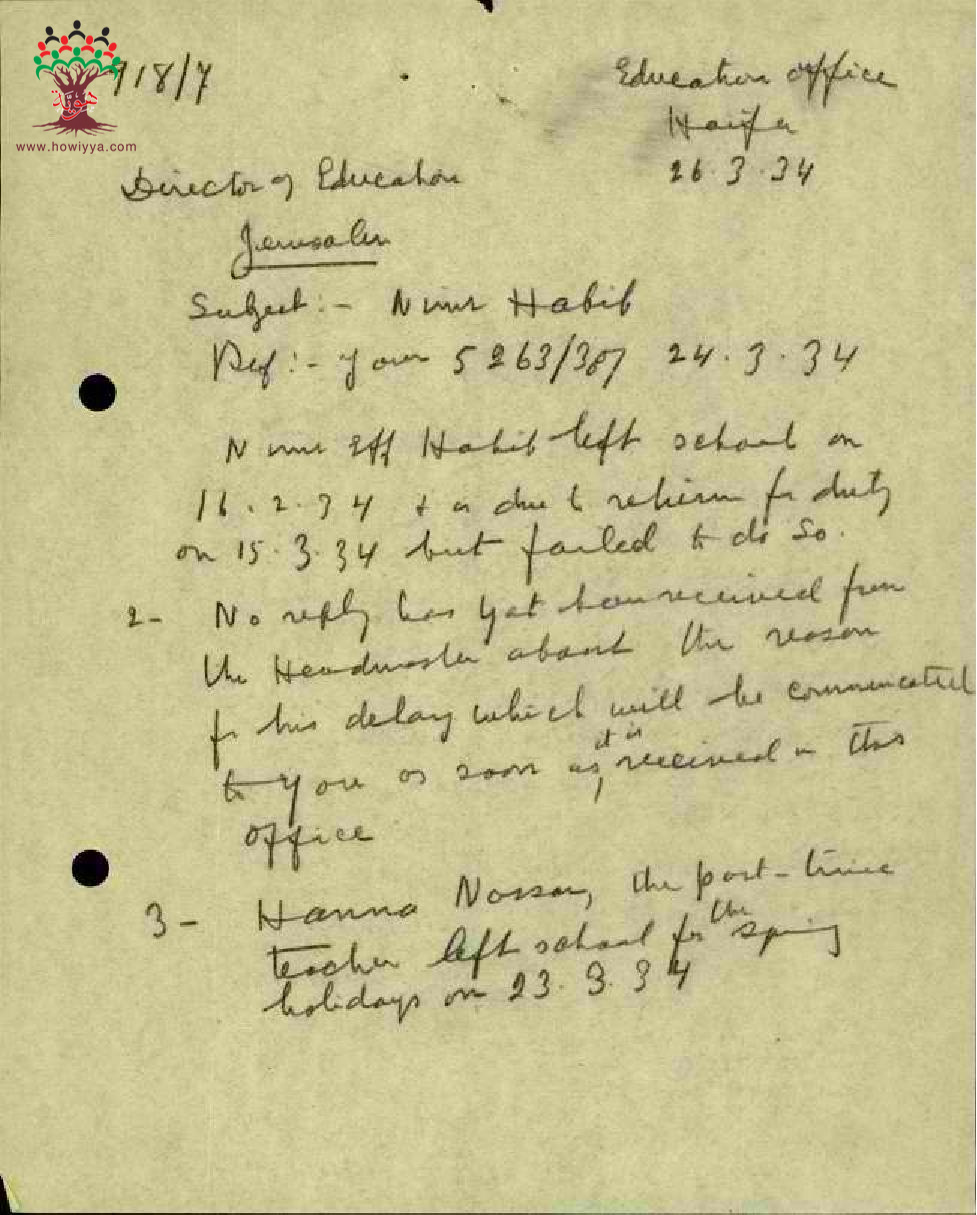 918/7
Education Office
Haifa
26.3.34
www.howiyya.com
Director of Education
Jerusalem
Subject:- Nimr Habib
Ref:- your 5263/307 24.3.34
Nimr Eff Habib left school on
16.2.34 & is due to return for duty
on 15.3.34 but failed to do so.
2- No reply has yet been received from
the Headmaster about the reason
for his delay which will be communicated
to you as soon as it is received in this
office
3- Hanna Nassar, the part-time
teacher left school for the spring
holidays on 23.3.34